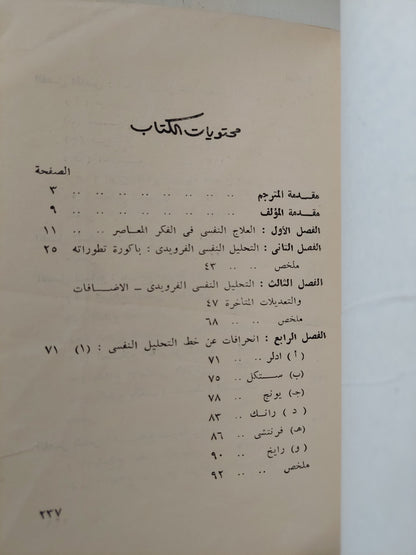 محتويات الكتاب
الصفحة
مقدمة المترجم .. .. .. .. .. .. .. .. ٣
مقدمة المؤلف .. .. .. .. .. .. .. .. ٩
الفصل الأول : العلاج النفسى فى الفكر المعاصر .. .. ١١
الفصل الثانى : التحليل النفسى الفرويدى : باكورة تطوراته ٢٥
ملخص .. .. .. ٤٣
الفصل الثالث : التحليل النفسى الفرويدى ــ الاضافات
والتعديلات المتاخرة ٤٧
ملخص .. .. .. ٦٨
الفصل الرابع : انحرافات عن خط التحليل النفسى : (١) ٧١
( أ ) ادلر .. .. ٧١
(ب) ستكل .. .. ٧٥
(جـ) يونج .. .. ٧٨
( د ) رانك .. .. ٨٣
(هـ) فرنتشى .. .. ٨٦
( و ) رايخ .. .. ٩٠
ملخص .. .. .. ٩٢
٢٣٧